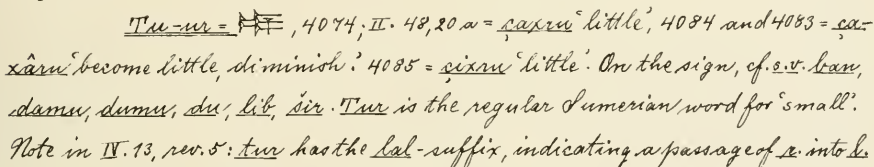 Tu-ur = 𒌉, 4074; II. 48, 20 a = çaxru 'little', 4084 and 4083 = ça-
xâru 'become little, diminish'. 4085 = çixru 'little'. On the sign, cf. s.v. ban,
damu, dumu, du, lib, šir. Tur is the regular Sumerian word for 'small'.
Note in IV. 13, rev. 5: tur has the lal-suffix, indicating a passage of r. into l.